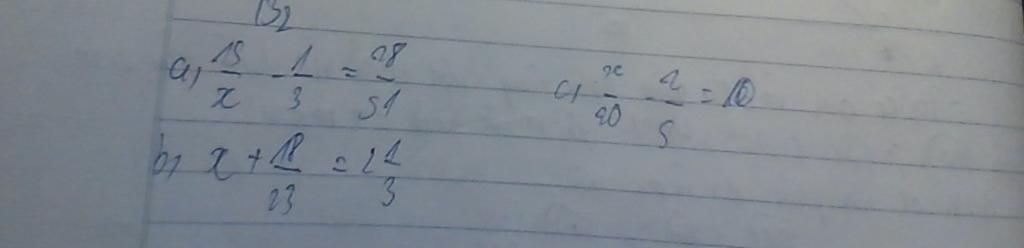 B2
a, 15/x - 1/3 = 28/51
c, x/20 - 2/5 = 10
b, x + 18/23 = 2 1/3